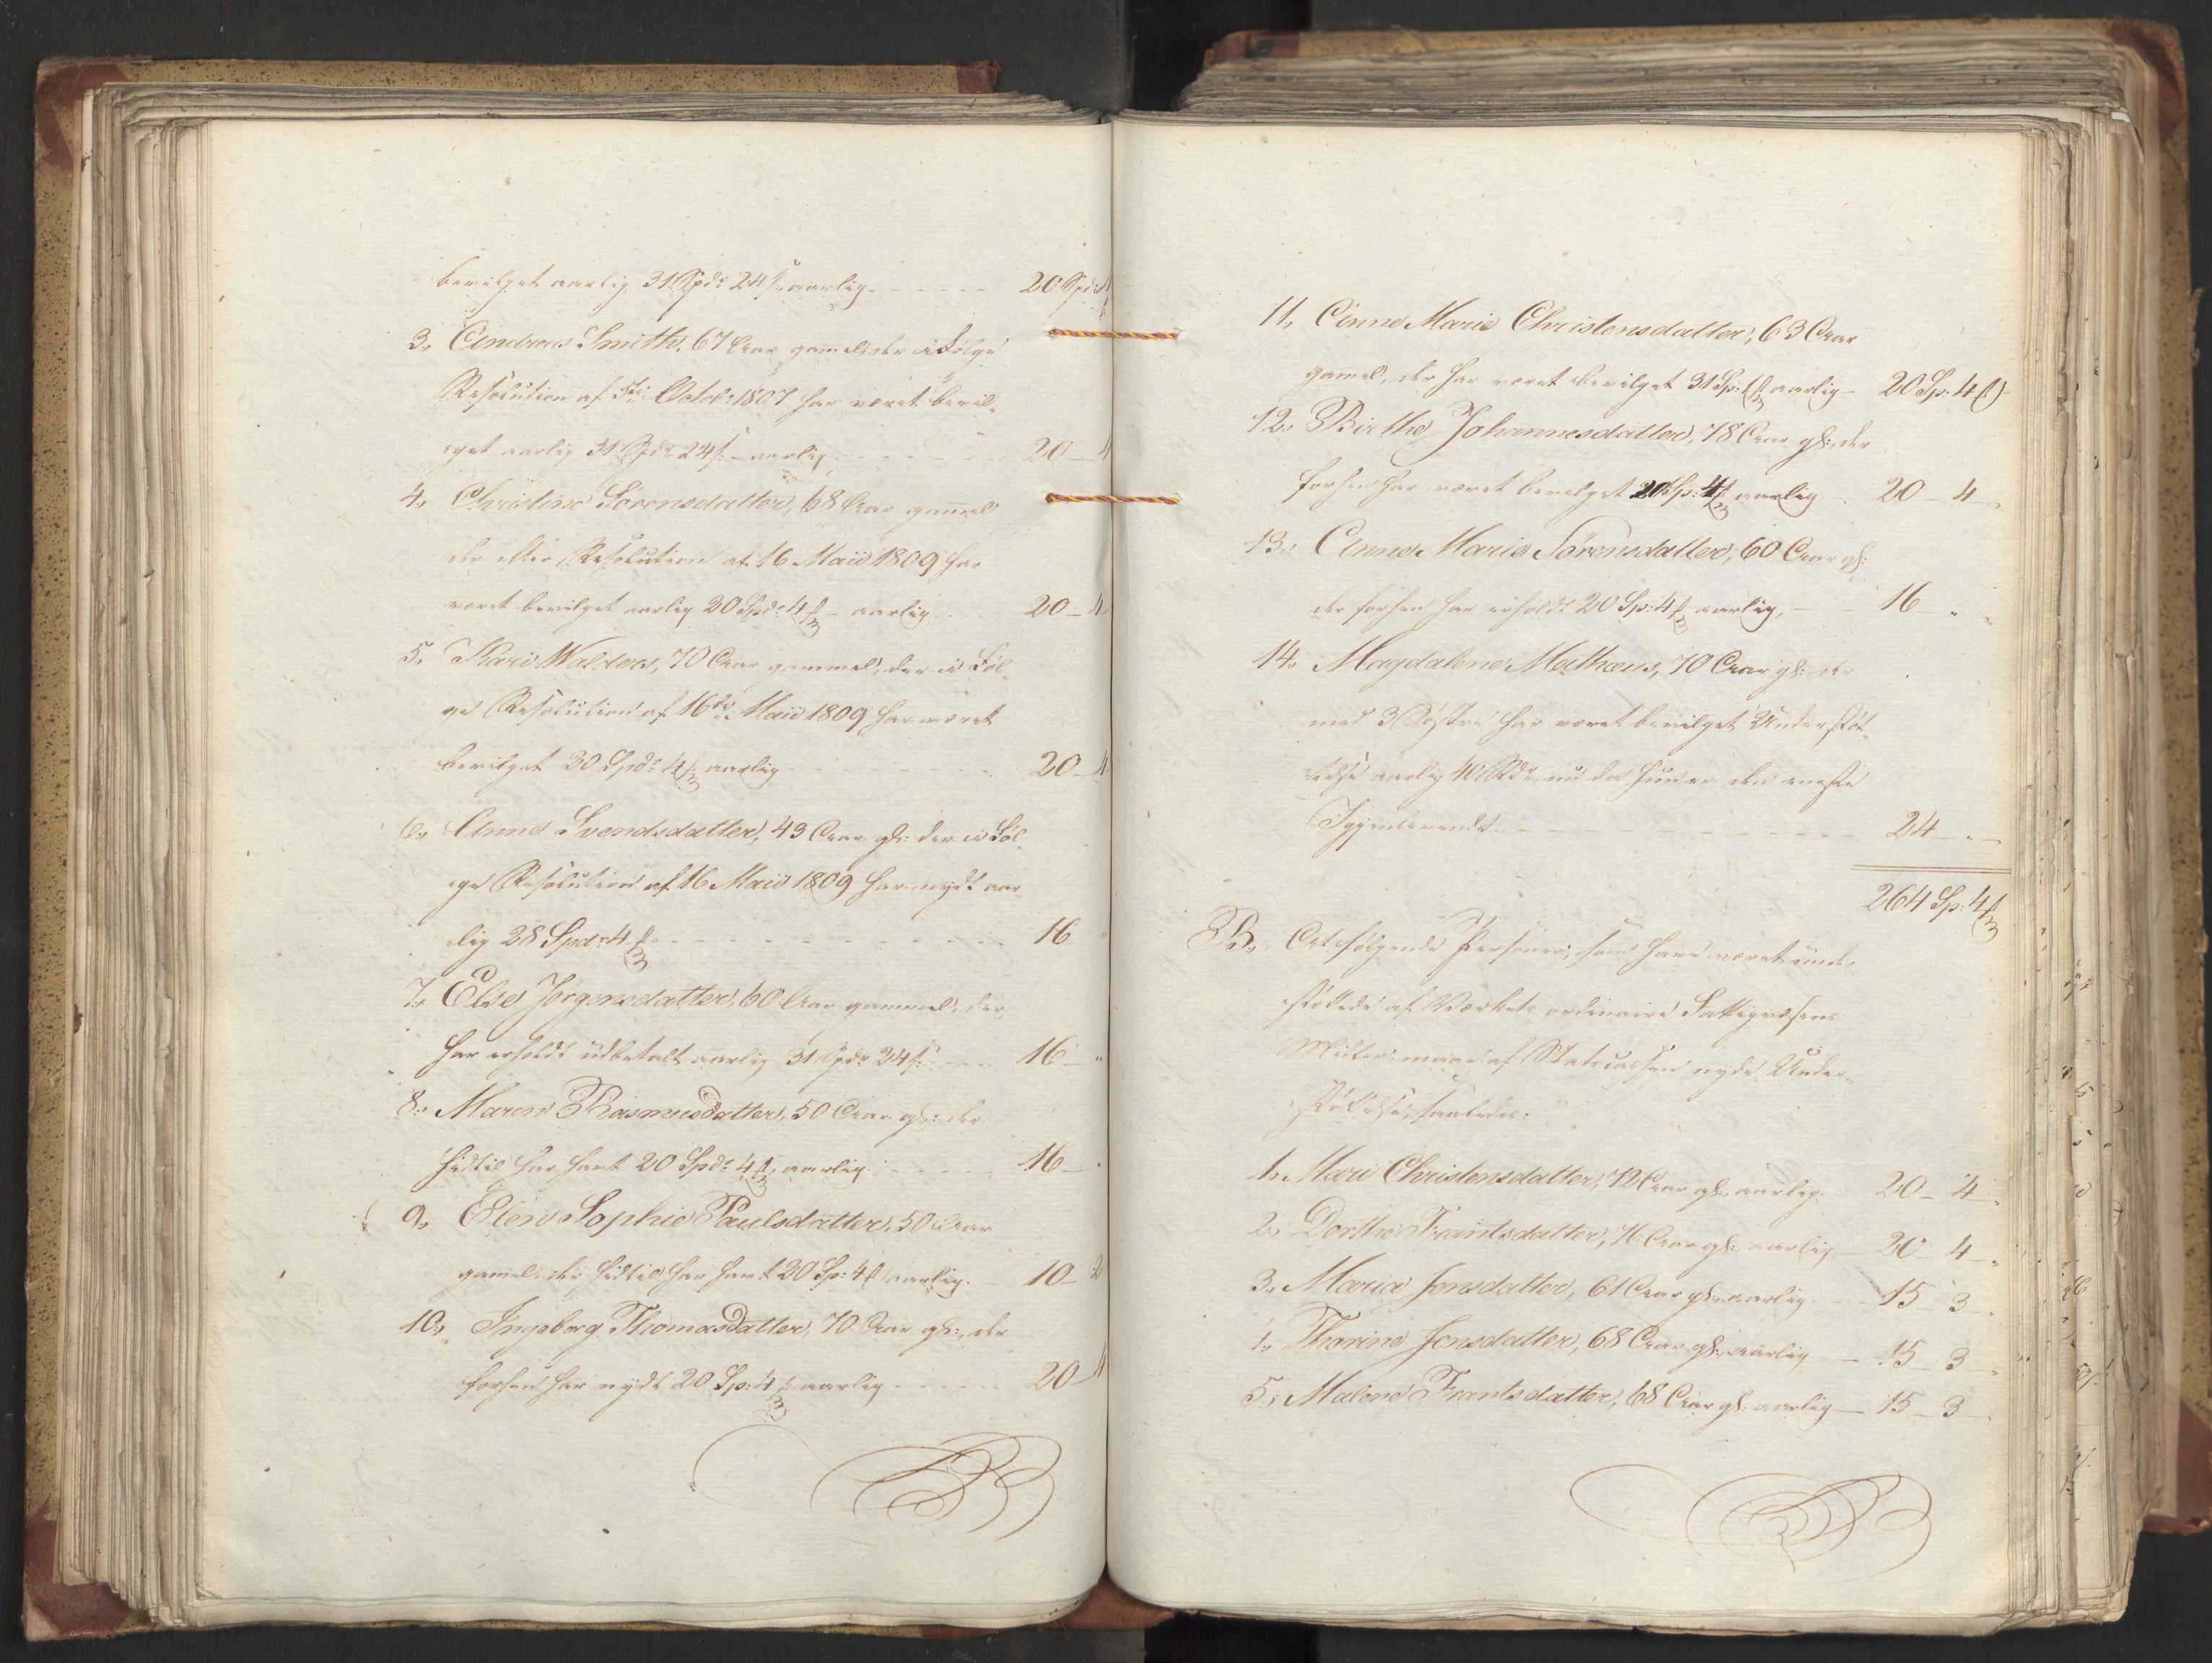 bevilget aarlig 31 Spdr 24 s. aarlig 20 Spd 4
3, Andreas Smith, 67 Aar gamel, der i Følge
Resolution af 5te Octobr 1807 har været bevil-
get aarlig 31 Spdr 24 s. aarlig 20 - 4
4, Christine Sörensdatter, 68 Aar gamel
der efter Resolution af 16 Maii 1809 har
været bevilget aarlig 20 Spdr 4 aarlig 20 - 4
5, Kari Walders, 70 Aar gammel, der i Föl-
ge Resolution af 16de Maii 1809 har været
bevilget 20 Spdr 4 aarlig 20 - 4
6, Anne Svendsdatter, 43 Aar gl: der i Föl-
ge Resolution af 16 Maii 1809 har nydt aar-
lig 28 Spdr 4 16
7, Else Jörgensdatter, 60 Aar gammel, der
har erholdt udbetalt aarlig 31 Spdr 24 s. 16 -
8, Maren Rasmusdatter, 50 Aar gl: der
hidtil har havt 20 Spdr 4 aarlig 16 -
9, Elen Sophie Paulsdatter, 50 Aar
gamel, der hidtil har havt 20 Sp: 4 aarlig. 10 - 2
10, Ingeborg Thomasdatter, 70 Aar gl:, der
forhen har nydt 20 Sp: 4 aarlig 20 - 4
11, Anne Marie Christensdatter, 63 Aar
gamel, der har været bevilget 31 Sp: aarlig - 20 Sp: 4
12, Birthe Johannesdatter, 78 Aar gl: der
forhen har været bevilget 20 Sp: 4 aarlig 20 - 4
13, Anne Marie Sörensdatter, 60 Aar gl:
der forhen har erholdt 20 Sp: 4 aarlig, 16 "
14, Magdalene Mathæus, 70 Aar gl: der
med 3 Söstre har været bevilget Understöt-
telse aarlig 40 Rdr nu da hun er den eneste
Igjenlevende 24 "
264 Sp: 4
B, At følgende Personer, som have været under-
støttede af Værkets ordinaire Fattigvæsens
Midler, maae af Statscassen nyde Under-
støttelse, saaledes:
1, Mari Christensdatter, 72 Aar gl: aarlig. 20 - 4
2, Dorthe Frantsdatter, 76 Aar gl: aarlig 20 - 4
3, Maria Jensdatter, 61 Aar gl: aarlig 15 - 3
4, Thorine Jensdatter, 68 Aar gl: aarlig 15 - 3
5, Malene Frantsdatter, 68 Aar gl: aarlig 15 - 3